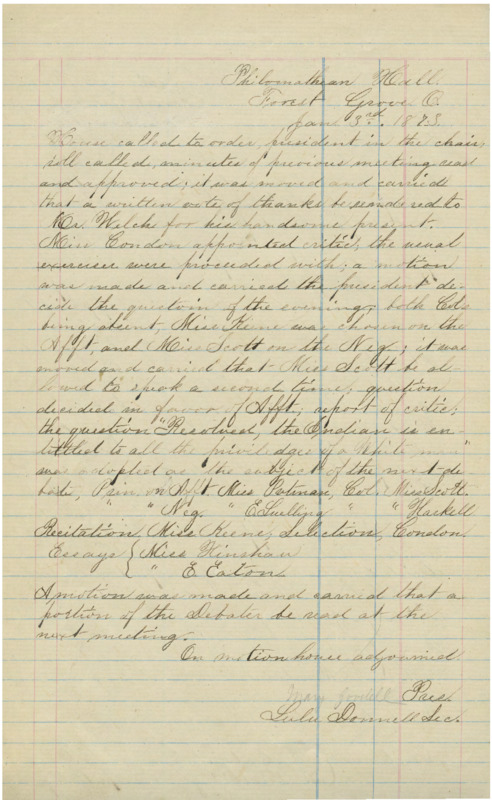 Philomathean Hall.
Forest Grove O.
Jan 3rd. 1873.
House called to order, president in the chair,
roll called, minutes of previous meeting read
and approved; it was moved and carried
that a written vote of thanks be rendered to
Mr. Walch for his handsome present.
Miss Condon appointed critic, the usual
exercises were proceeded with; a motion
was made and carried the president de-
cide the question of the evening, both Cols
being absent, Miss Keene was chosen on the
Afft, and Miss Scott on the Neg; it was
moved and carried that Miss Scott be al-
lowed to speak a second time; question
decided in favor of Afft; report of critic;
the question "Resolved, the Indian is en-
titled to all the priviledges of a White man"
was adopted as the subject of the next de-
bate, Prin. on Afft Miss Putman, Col. Miss Scott.
" " Neg. " E Snelling " " Haskell
Recitation, Miss Keene, Selection, Condon.
Essays { Miss Hinshaw
" E. Eaton
A motion was made and carried that a
portion of the Debater be read at the
next meeting.
On motion house adjourned
Mary Pres.
Lulu Donnell Sec.